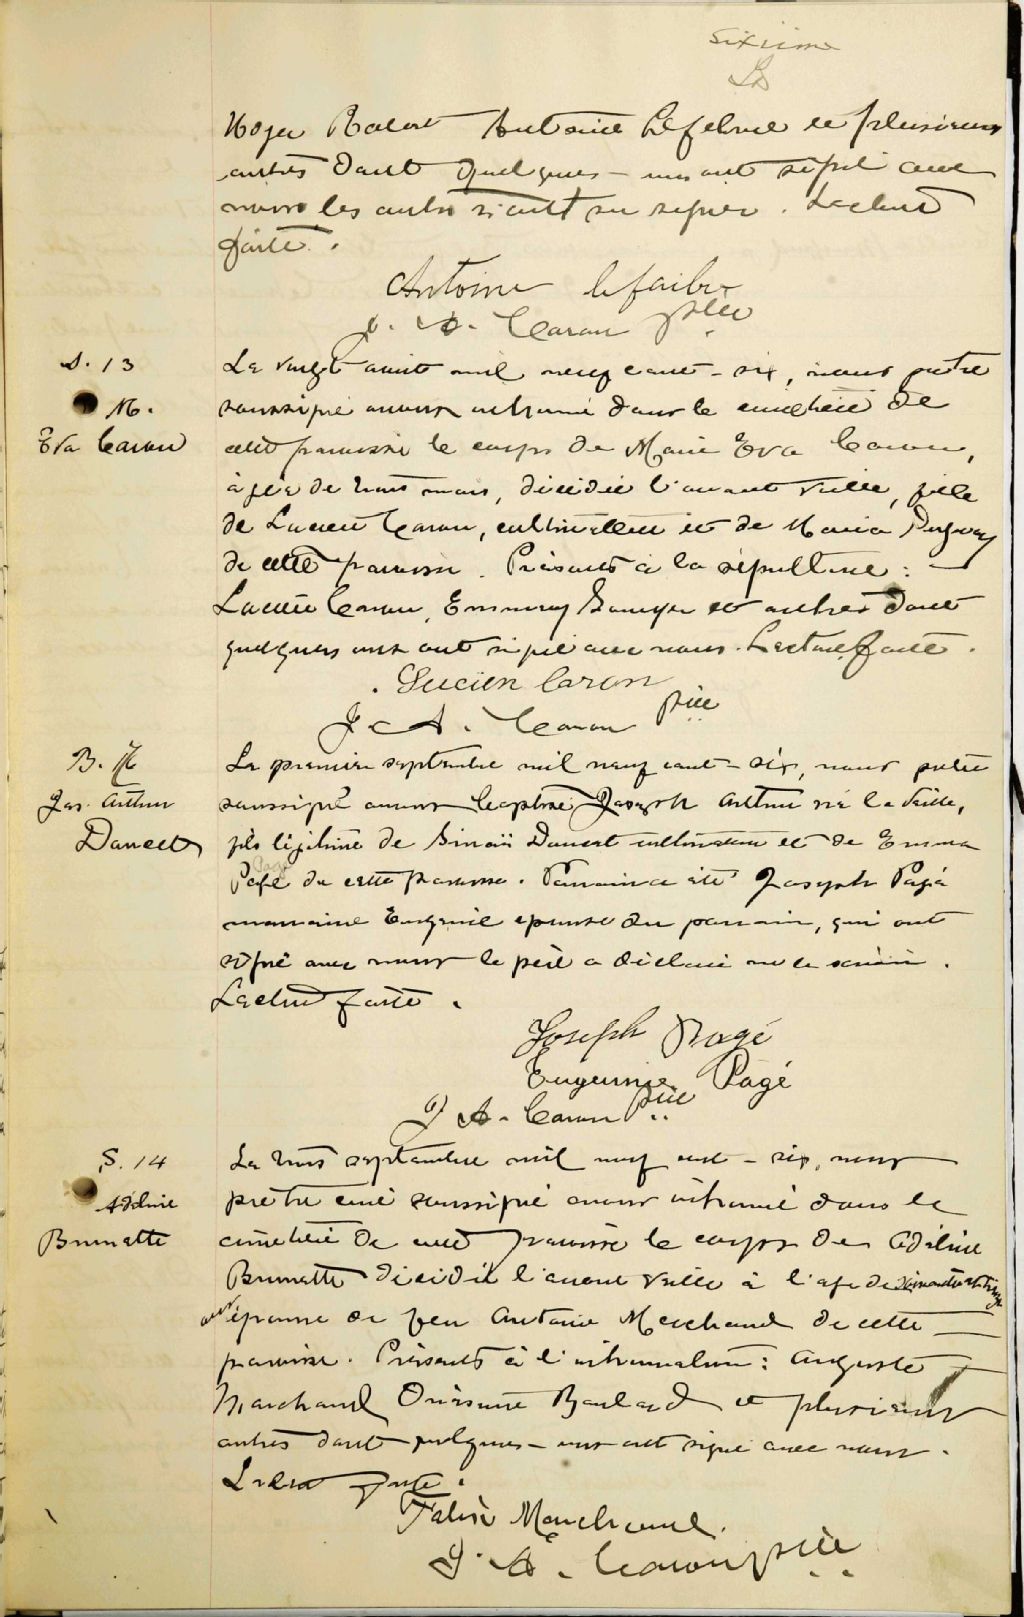 sixième
Roger Antoine Lefebvre et plusieurs
autres dont quelques-uns ont signé avec
nous les autres n'ont su signer. Lecture
faite.
Antoine lefaibre
J. A. Caron ptre
S. 13
M.
Eva Caron
Le vingt août mil neuf cent-six, nous prêtre
soussigné avons inhumé dans le cimetière de
cette paroisse le corps de Marie Eva Caron,
âgée de trois mois, décédée l'avant veille, fille
de Lucien Caron, cultivateur et de Maria Duguay
de cette paroisse. Présents à la sépulture:
Lucien Caron, et autres dont
quelques uns ont signé avec nous. Lecture faite.
Lucien Caron
J. A. Caron ptre
B.
Jos. Arthur
Daneau
Le premier septembre mil neuf cent-six, nous prêtre
soussigné avons baptisé Joseph Arthur né la veille,
fils légitime de cultivateur et de Emma
Pagé
Pagé de cette paroisse. Parrain a été Joseph Pagé
marraine Eugénie épouse du parrain, qui ont
signé avec nous le père a déclaré ne le savoir.
Lecture faite.
Joseph Pagé
Eugennie Pagé
J A. Caron ptre
S. 14
Adeline
Brunette
Le trois septembre mil neuf cent-six, nous
prêtre curé soussigné avons inhumé dans le
cimetière de cette paroisse le corps de Adeline
Brunette décédée l'avant veille à l'âge de
ans épouse de feu Antoine Marchand de cette
paroisse. Présents à l'inhumation: Auguste
Marchand et plusieurs
autres dont quelques-uns ont signé avec nous.
Lecture faite.
Marchand.
J. A. Caron ptre